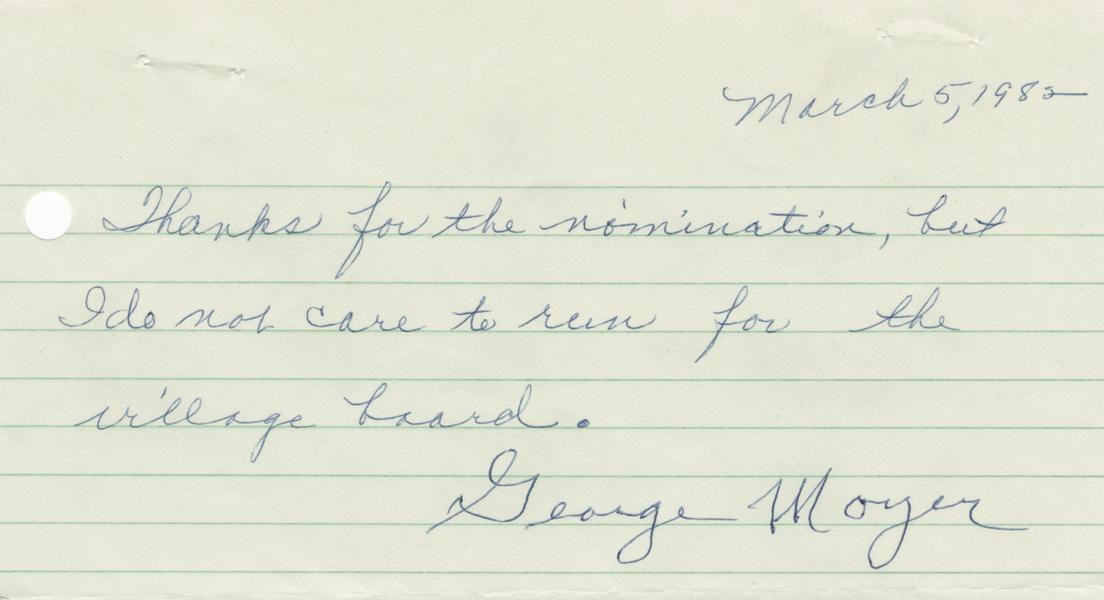 March 5, 1982
Thanks for the nomination, but
I do not care to run for the
village board.
George Moyer